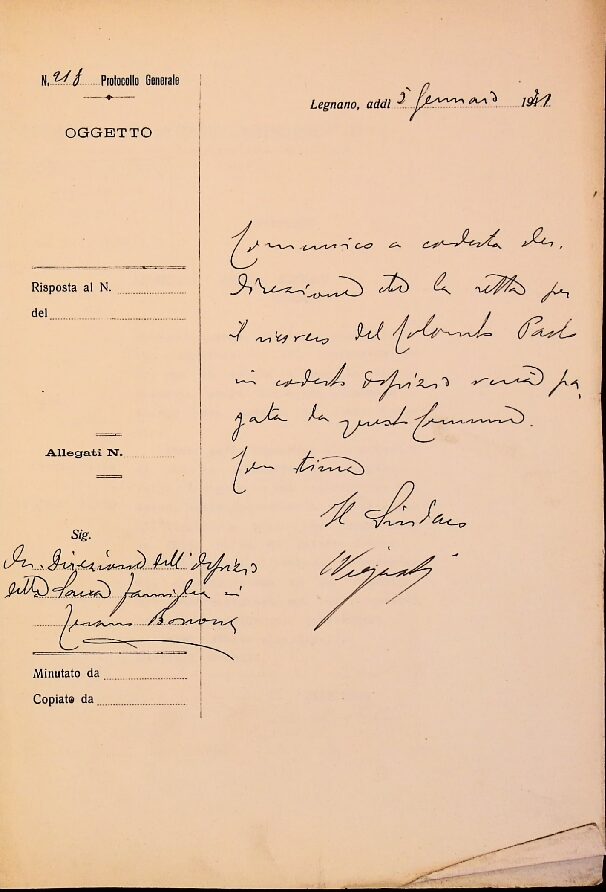 N. 218 Protocollo Generale
OGGETTO
Risposta al N.
del
Allegati N.
Sig.
On. Direzione dell'Ospizio
detto Sacra famiglia in
Cesano Boscone
Minutato da
Copiato da
Legnano, addì 5 Gennaio 19
Comunico a codesta On.
Direzione che la retta per
il ricovero del Colombo Paolo
in codesto Ospizio verrà pa,
gata da questo Comune.
Con stima
Il Sindaco